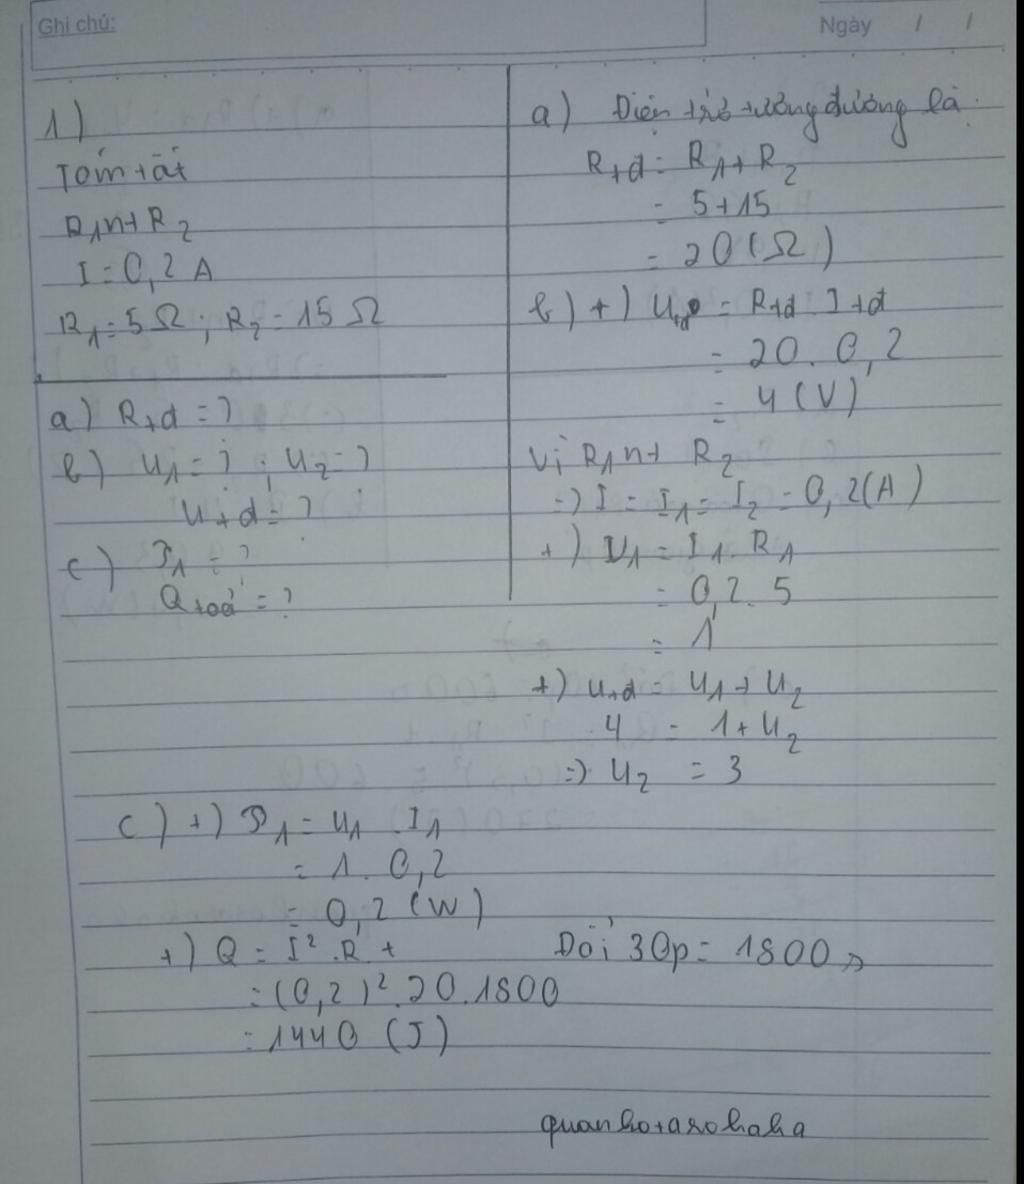 Ghi chú:
Ngày / /
1)
Tóm tắt
R1 nt R2
I = 0,2 A
R1 = 5 Ω ; R2 = 15 Ω
a) Rtđ = ?
b) U1 = ? ; U2 = ?
Utđ = ?
c) P1 = ?
Qtoả = ?
a) Điện trở tương đương là:
Rtđ = R1 + R2
= 5 + 15
= 20 (Ω)
b) +) Utđ = Rtđ . Itđ
= 20 . 0,2
= 4 (V)
Vì R1 nt R2
=> I = I1 = I2 = 0,2 (A)
+) U1 = I1 . R1
= 0,2 . 5
= 1
+) Utđ = U1 + U2
4 = 1 + U2
=> U2 = 3
c) +) P1 = U1 . I1
= 1 . 0,2
= 0,2 (W)
+) Q = I² . R . t
Đổi 30p = 1800 s
= (0,2)² . 20 . 1800
= 1440 (J)
quanhotarohaha